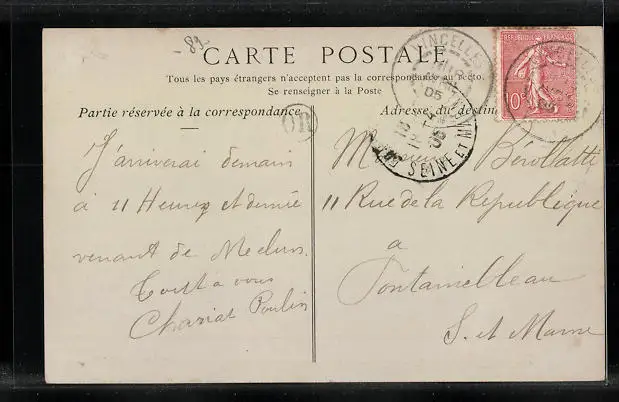 - 89
CARTE POSTALE
Tous les pays étrangers n'acceptent pas la correspondance au recto.
Se renseigner à la Poste
Partie réservée à la correspondance
OR
J'arriverai demain
à 11 Heures et demie
venant de Melun.
Tout à vous
Poulin
Adresse du destin
M
11 Rue de la République
a
Fontainebleau
S. et Marne
VINCELLES
05
SEINE ET MARNE
05
REPUBLIQUE FRANÇAISE
10c